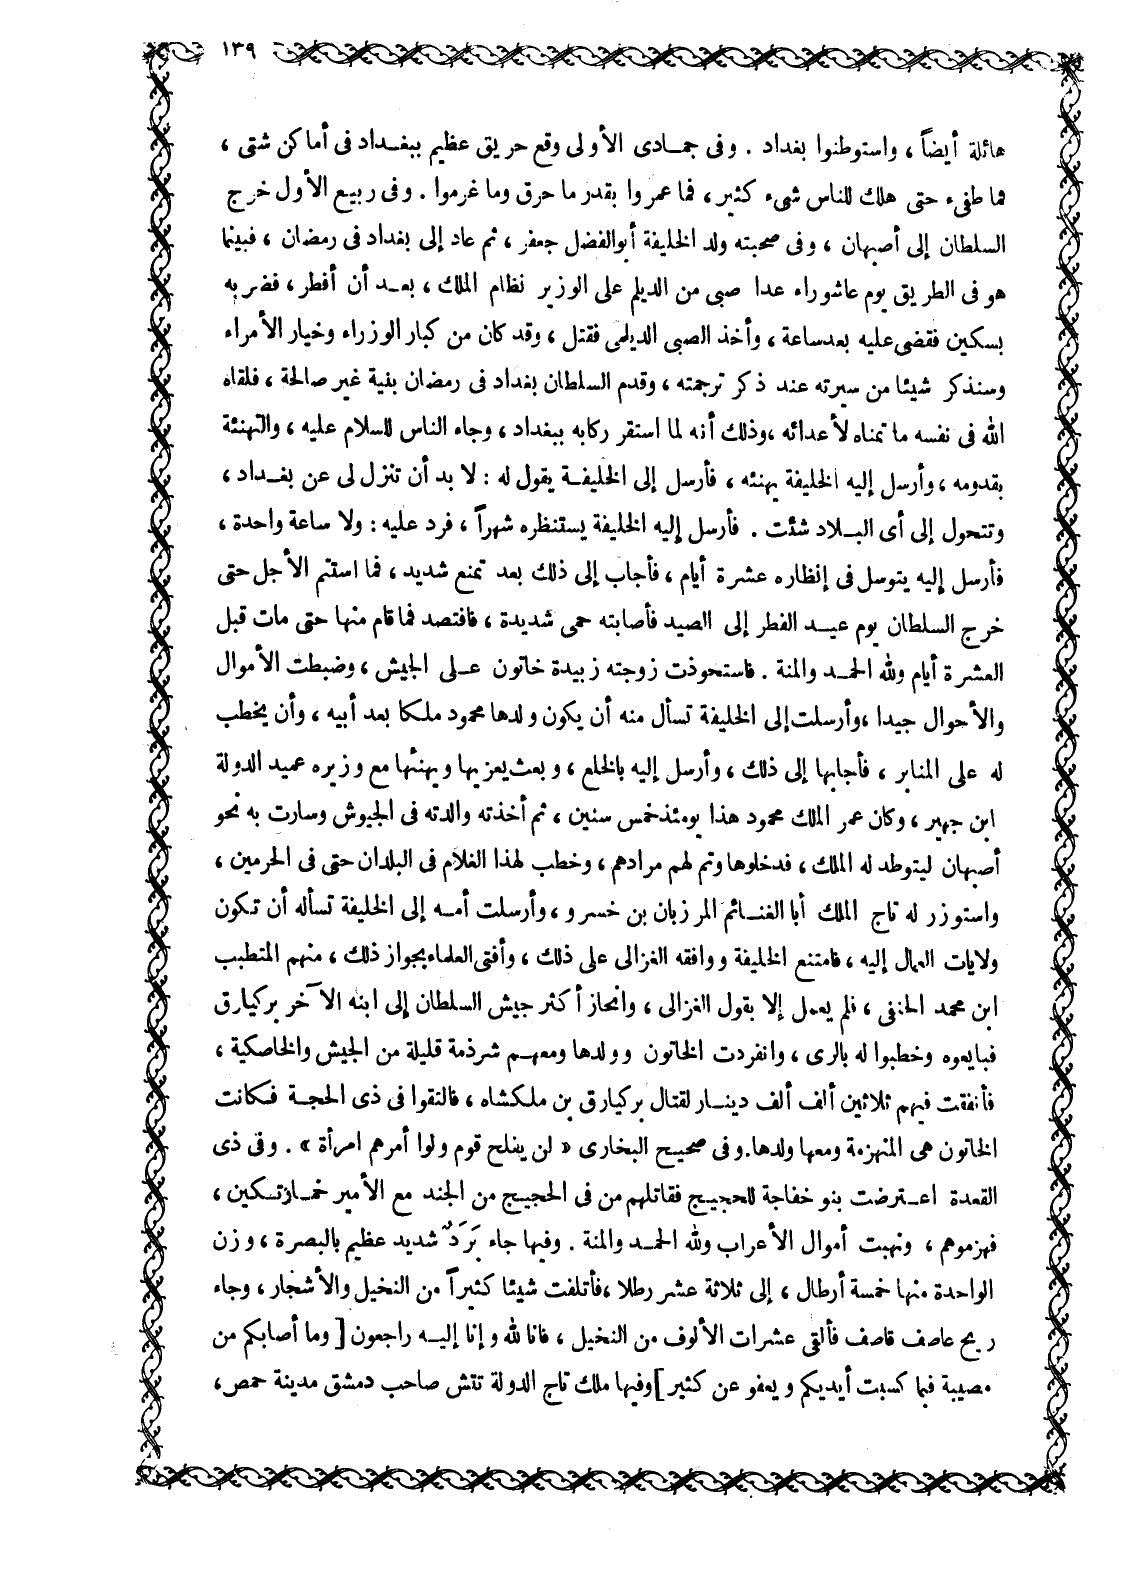 ١٣٩
هائلة أيضاً ، واستوطنوا بغداد . وفى جمادى الأولى وقع حريق عظيم ببغداد فى أماكن شتى ،
فما طفىء حتى هلك للناس شىء كثير ، فما عمروا بقدر ما حرق وما غرموا . وفى ربيع الأول خرج
السلطان إلى أصبهان ، وفى صحبته ولد الخليفة أبو الفضل جعفر ، ثم عاد إلى بغداد فى رمضان ، فبينما
هو فى الطريق يوم عاشوراء عدا صبى من الديلم على الوزير نظام الملك ، بعد أن أفطر ، فضربه
بسكين فقضى عليه بعد ساعة ، وأخذ الصبى الديلمى فقتل ، وقد كان من كبار الوزراء وخيار الأمراء
وسنذكر شيئا من سيرته عند ذكر ترجمته ، وقدم السلطان بغداد فى رمضان بنية غير صالحة ، فلقاه
الله فى نفسه ما تمناه لأعدائه ، وذلك أنه لما استقر ركابه ببغداد ، وجاء الناس للسلام عليه ، والتهنئة
بقدومه ، وأرسل إليه الخليفة يهنئه ، فأرسل إلى الخليفة يقول له : لا بد أن تنزل لى عن بغداد ،
وتتحول إلى أى البلاد شئت . فأرسل إليه الخليفة يستنظره شهراً ، فرد عليه : ولا ساعة واحدة ،
فأرسل إليه يتوسل فى إنظاره عشرة أيام ، فأجاب إلى ذلك بعد تمنع شديد ، فما استتم الأجل حتى
خرج السلطان يوم عيد الفطر إلى الصيد فأصابته حمى شديدة ، فافتصد فما قام منها حتى مات قبل
العشرة أيام ولله الحمد والمنة . فاستحوذت زوجته زبيدة خاتون على الجيش ، وضبطت الأموال
والأحوال جيدا ، وأرسلت إلى الخليفة تسأل منه أن يكون ولدها محمود ملكا بعد أبيه ، وأن يخطب
له على المنابر ، فأجابها إلى ذلك ، وأرسل إليه بالخلع ، وبعث يعزيها ويهنئها مع وزيره عميد الدولة
ابن جهير ، وكان عمر الملك محمود هذا يومئذ خمس سنين ، ثم أخذته والدته فى الجيوش وسارت به نحو
أصبهان ليتوطد له الملك ، فدخلوها وتم لهم مرادهم ، وخطب لهذا الغلام فى البلدان حتى فى الحرمين ،
واستوزر له تاج الملك أبا الغنائم المرزبان بن خسرو ، وأرسلت أمه إلى الخليفة تسأله أن تكون
ولايات العمال إليه ، فامتنع الخليفة ووافقه الغزالى على ذلك ، وأفتى العلماء بجواز ذلك ، منهم المتطبب
ابن محمد الحنفى ، فلم يعمل إلا بقول الغزالى ، وانحاز أكثر جيش السلطان إلى ابنه الآخر بركيارق
فبايعوه وخطبوا له بالرى ، وانفردت الخاتون وولدها ومعهم شرذمة قليلة من الجيش والخاصكية ،
فأنفقت فيهم ثلاثين ألف ألف دينار لقتال بركيارق بن ملكشاه ، فالتقوا فى ذى الحجة فكانت
الخاتون هى المنهزمة ومعها ولدها.وفى صحيح البخارى « لن يفلح قوم ولوا أمرهم امرأة » . وفى ذى
القعدة اعترضت بنو خفاجة للحجيج فقاتلهم من فى الحجيج من الجند مع الأمير خمارتكين ،
فهزموهم ، ونهبت أموال الأعراب ولله الحمد والمنة . وفيها جاء بَرَدٌ شديد عظيم بالبصرة ، وزن
الواحدة منها خمسة أرطال ، إلى ثلاثة عشر رطلا ، فأتلفت شيئا كثيراً من النخيل والأشجار ، وجاء
ريح عاصف قاصف فألقى عشرات الألوف من النخيل ، فانا لله وإنا إليه راجعون [ وما أصابكم من
مصيبة فبما كسبت أيديكم ويعفو عن كثير ] وفيها ملك تاج الدولة تتش صاحب دمشق مدينة حمص ،